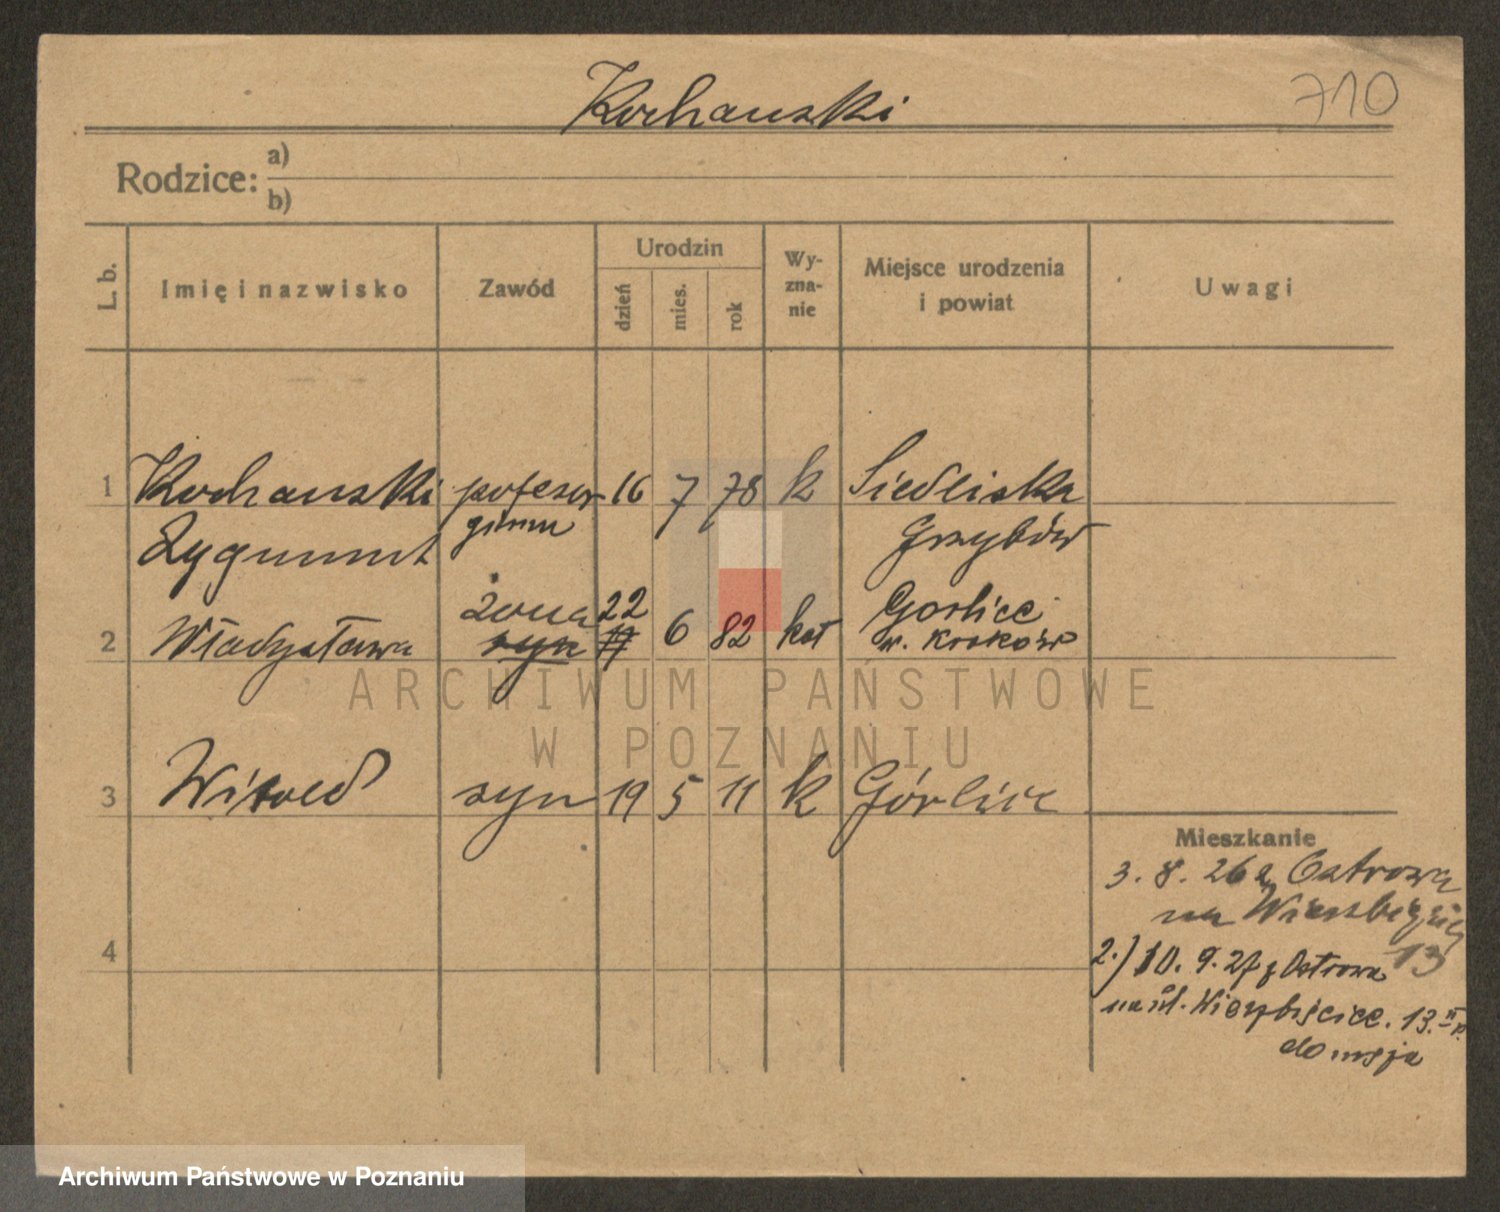 Kochanski
710
Rodzice: a)
b)
L. b.
Imię i nazwisko
Zawód
Urodzin
dzień
mies.
rok
Wy-
zna-
nie
Miejsce urodzenia
i powiat
Uwagi
1 Kochanski profesor 16 7 78 k Siedliska
Zygmunt gimn Grzybów
żona 22 Gorlice
2 Władysława syn 6 82 kat w. Kraków
ARCHIWUM PAŃSTWOWE
W POZNANIU
3 Witold syn 19 5 11 k Górlice
Mieszkanie
3. 8. 26 z Ostrowa
na Wierzbięcice
13
4
2.) 10. 9. 27 z Ostrowa
na ul. Wierzbięcice. 13. II p.
Archiwum Państwowe w Poznaniu